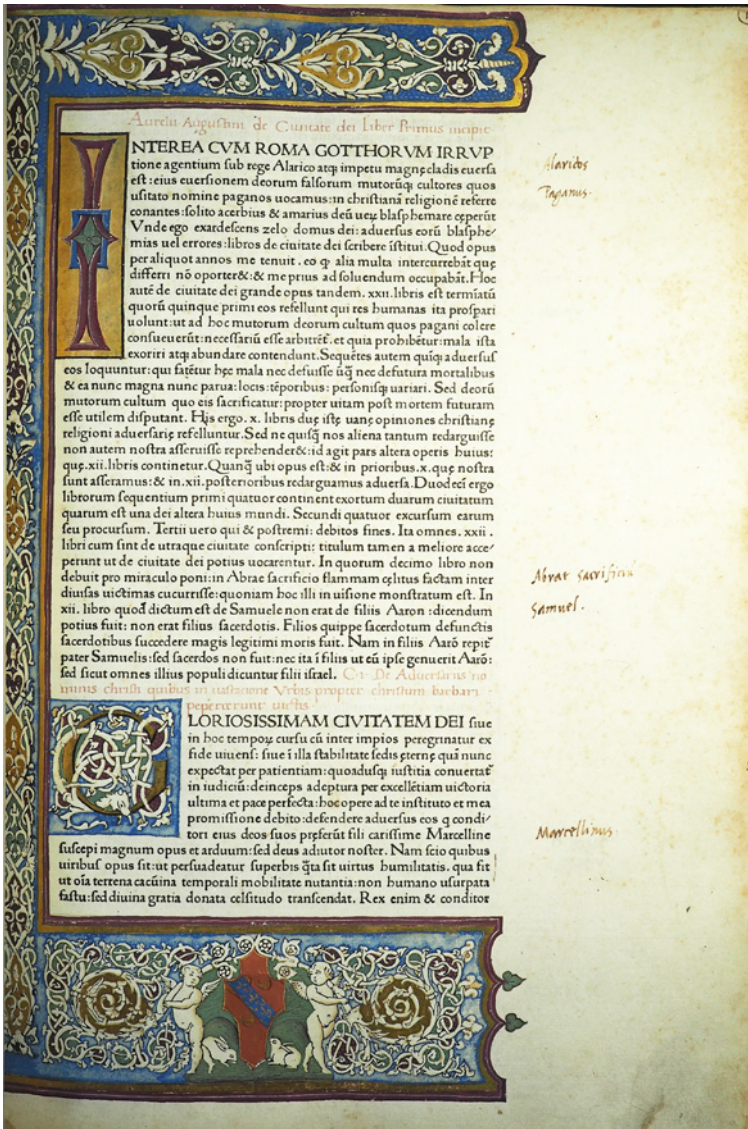 Aurelii Augustini de Ciuitate dei Liber Primus incipit
INTEREA CVM ROMA GOTTHORVM IRRVP
tione agentium sub rege Alarico atq; impetu magnę cladis euersa
est: eius euersionem deorum falsorum mutorūq; cultores quos
usitato nomine paganos uocamus: in christianā religionē referre
conantes: solito acerbius & amarius deū ueꝝ blasphemare cęperūt
Vnde ego exardescens zelo domus dei: aduersus eorū blasphe-
mias uel errores: libros de ciuitate dei scribere īstitui. Quod opus
per aliquot annos me tenuit. eo ꝙ alia multa intercurrebāt quę
differri nō oporter&: & me prius ad soluendum occupabāt. Hoc
autē de ciuitate dei grande opus tandem. xxii. libris est termiatū
quorū quinque primi eos refellunt qui res humanas ita prospari
uolunt: ut ad hoc mutorum deorum cultum quos pagani colere
consueuerūt: necessariū esse arbitrēt. et quia prohibētur: mala ista
exoriri atq; abundare contendunt. Sequētes autem quīq; aduersus
eos loquuntur: qui fatētur hęc mala nec defuisse ūq̄ nec defutura mortalibus
& ea nunc magna nunc parua: locis: tēporibus: personisq; uariari. Sed deorū
mutorum cultum quo eis sacrificatur: propter uitam post mortem futuram
esse utilem disputant. His ergo. x. libris duę istę uanę opiniones christianę
religioni aduersarię refelluntur. Sed ne quisq̄ nos aliena tantum redarguisse
non autem nostra asseruisse reprehender&: id agit pars altera operis huius:
quę. xii. libris continetur. Quanq̄ ubi opus est: & in prioribus. x. quę nostra
sunt asseramus: & in. xii. posterioribus redarguamus aduersa. Duodecī ergo
librorum sequentium primi quatuor continent exortum duarum ciuitatum
quarum est una dei altera huius mundi. Secundi quatuor excursum earum
seu procursum. Tertii uero qui & postremi: debitos fines. Ita omnes. xxii.
libri cum sint de utraque ciuitate conscripti: titulum tamen a meliore acce-
perunt ut de ciuitate dei potius uocarentur. In quorum decimo libro non
debuit pro miraculo poni: in Abrae sacrificio flammam cęlitus factam inter
diuisas uictimas cucurrisse: quoniam hoc illi in uisione monstratum est. In
xii. libro quod dictum est de Samuele non erat de filiis Aaron: dicendum
potius fuit: non erat filius sacerdotis. Filios quippe sacerdotum defunctis
sacerdotibus succedere magis legitimi moris fuit. Nam in filiis Aarō repit̄
pater Samuelis: sed sacerdos non fuit: nec ita ī filiis ut eū ipse genuerit Aarō:
sed sicut omnes illius populi dicuntur filii israel. C. i. De Aduersariis no
minis christi quibus in uastacione Vrbis propter christum barbari
pepercerunt uictis
GLORIOSISSIMAM CIVITATEM DEI siue
in hoc tempoꝝ cursu cū inter impios peregrinatur ex
fide uiuens: siue ī illa stabilitate sedis ęternę quā nunc
expectat per patientiam: quoadusq; iustitia conuertat̄
in iudiciū: deinceps adeptura per excellētiam uictoria
ultima et pace perfecta: hoc opere ad te instituto et mea
promissione debito: defendere aduersus eos q condi-
tori eius deos suos pręferūt fili carissime Marcelline
suscepi magnum opus et arduum: sed deus adiutor noster. Nam scio quibus
uiribus opus sit: ut persuadeatur superbis q̄ta sit uirtus humilitatis. qua fit
ut oīa terrena cacūina temporali mobilitate nutantia: non humano usurpata
fastu: sed diuina gratia donata celsitudo transcendat. Rex enim & conditor
Alaricos
Paganus.
Abrae sacrificiū
Samuel.
Marcellinus.